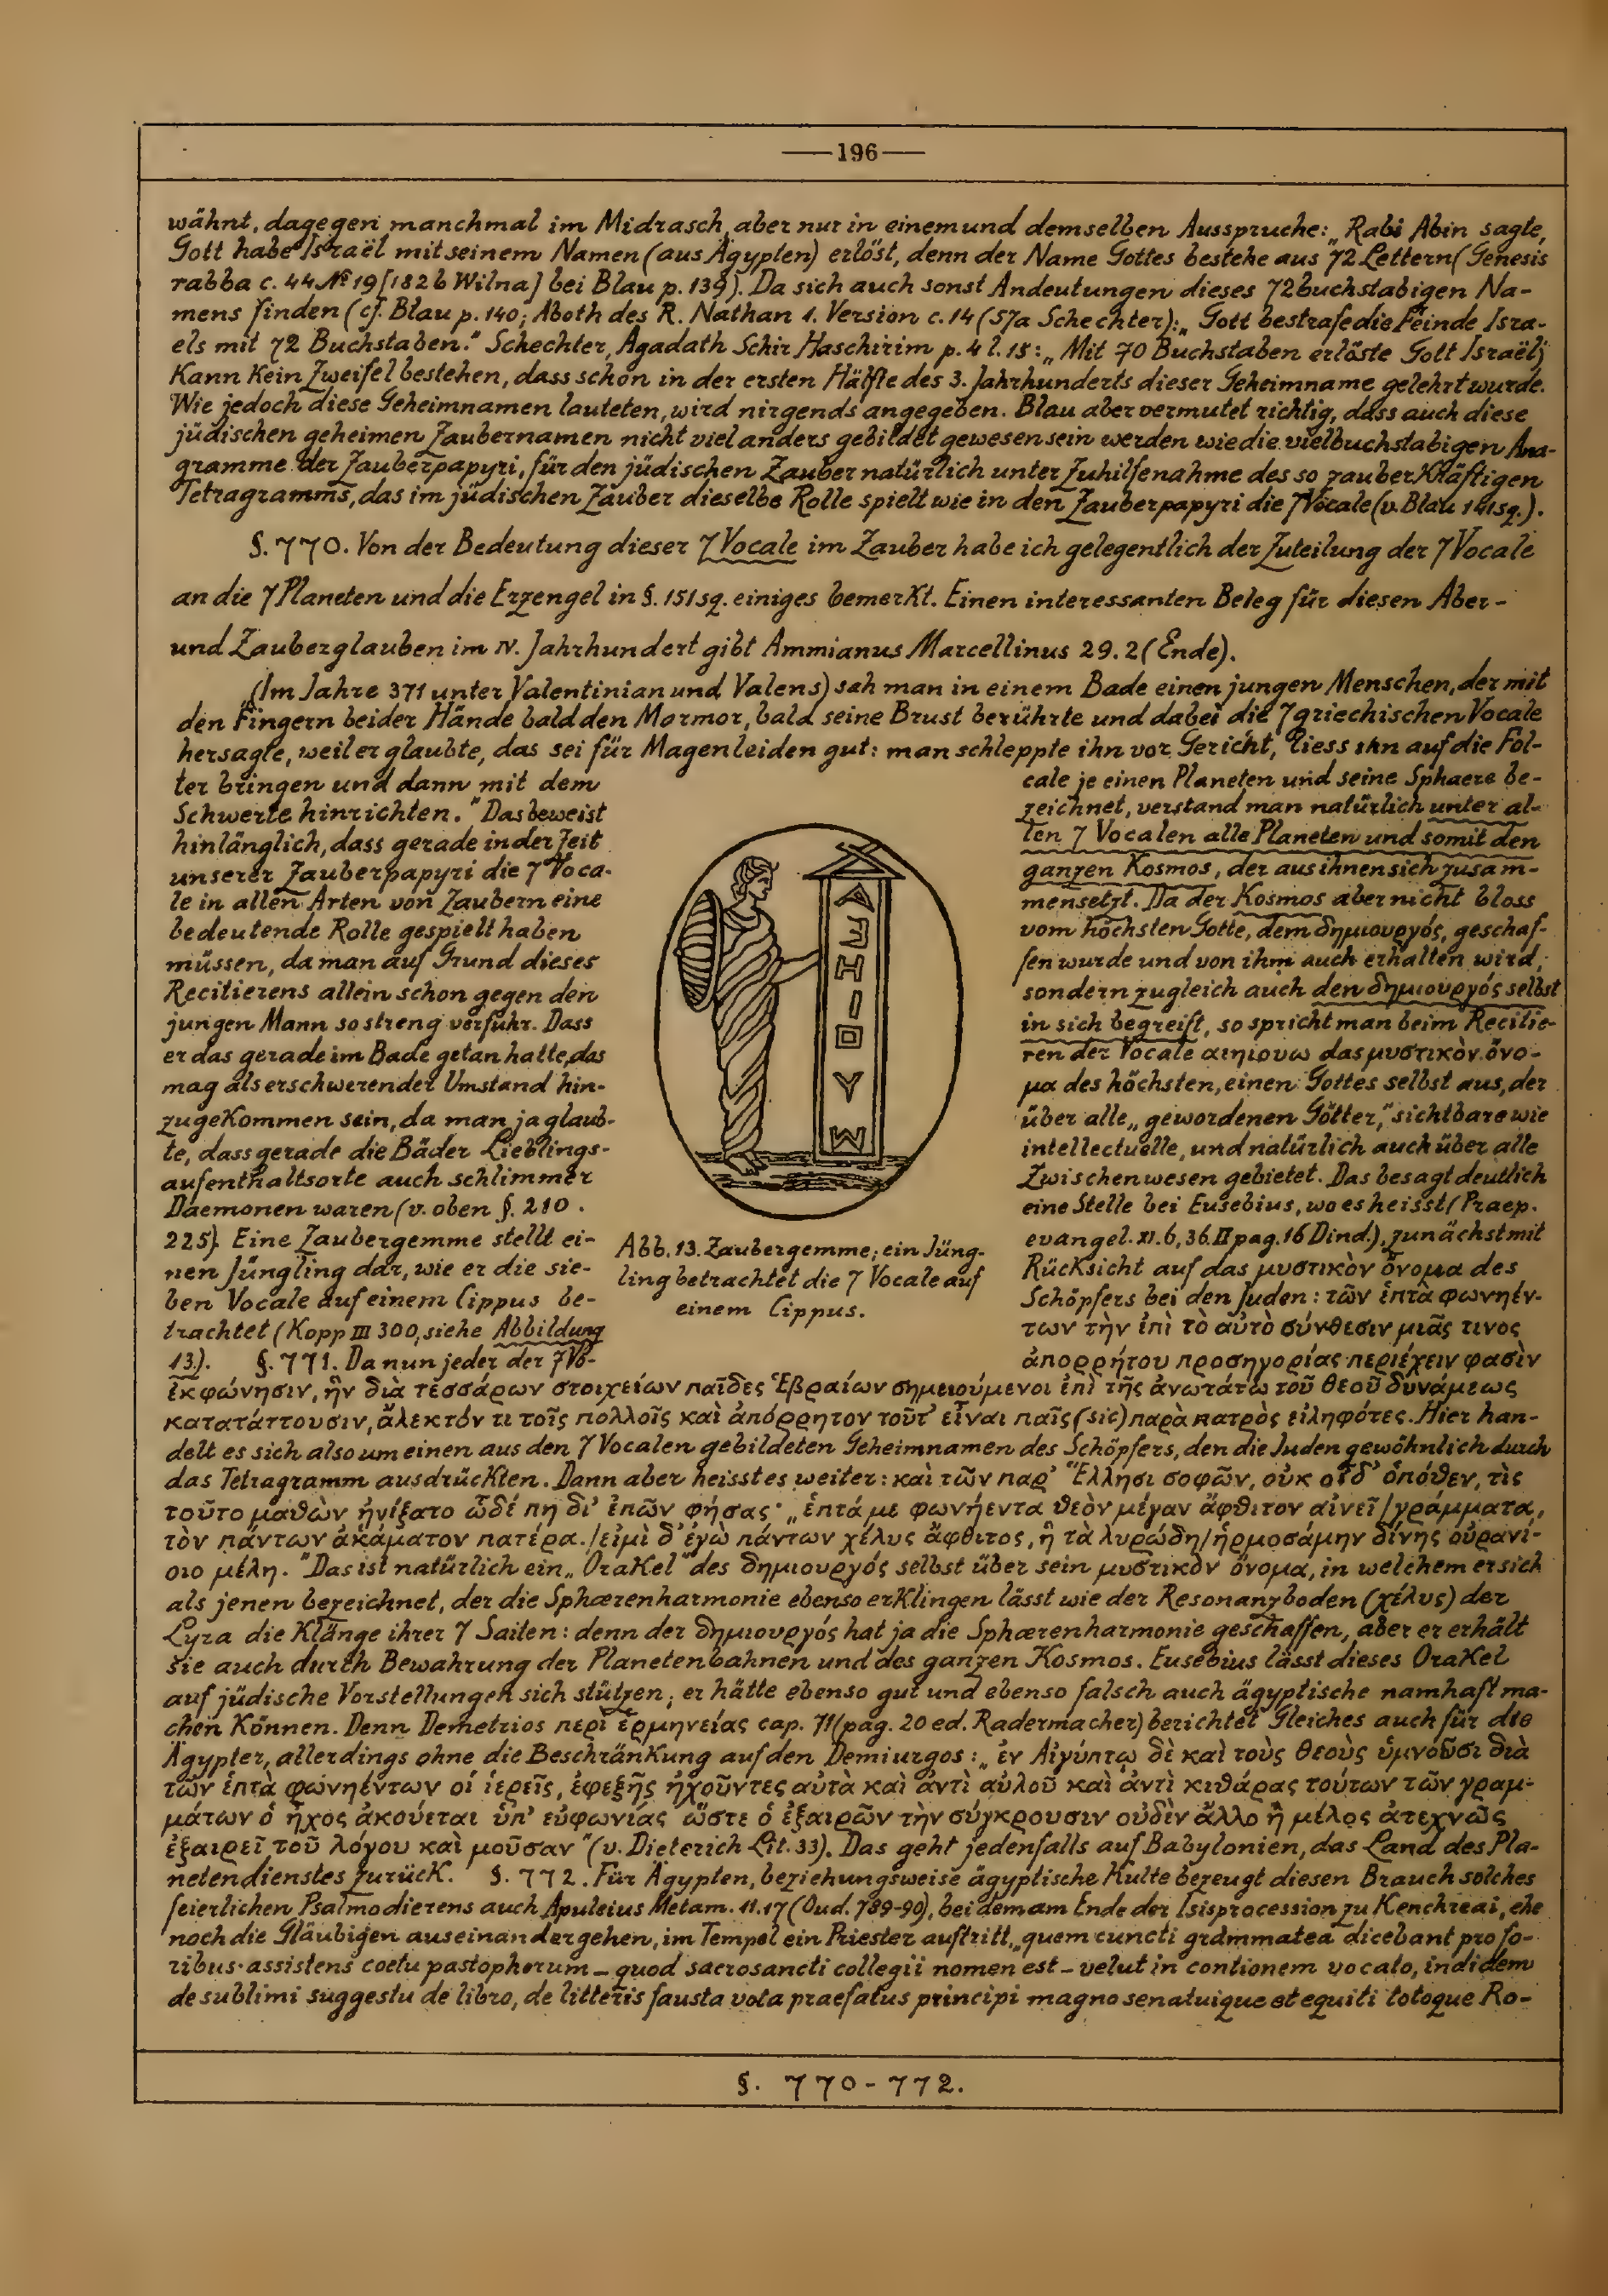 — 196 —
wähnt, dagegen manchmal im Midrasch, aber nur in einem und demselben Ausspruche: „Rabi Abin sagte,
Gott habe Israël mit seinem Namen (aus Ägypten) erlöst, denn der Name Gottes bestehe aus 72 Lettern (Genesis
rabba c. 44 № 19 [182 b Wilna] bei Blau p. 139). Da sich auch sonst Andeutungen dieses 72buchstabigen Na-
mens finden (cf. Blau p. 140; Aboth des R. Nathan 1. Version c. 14 (57a Schechter): „Gott bestrafe die Feinde Isra-
els mit 72 Buchstaben." Schechter, Agadath Schir Haschirim p. 4 l. 15: „Mit 70 Buchstaben erlöste Gott Israël)
Kann Kein Zweifel bestehen, dass schon in der ersten Hälfte des 3. Jahrhunderts dieser Geheimname gelehrt wurde.
Wie jedoch diese Geheimnamen lauteten, wird nirgends angegeben. Blau aber vermutet richtig, dass auch diese
jüdischen geheimen Zaubernamen nicht viel anders gebildet gewesen sein werden wie die vielbuchstabigen Ana-
gramme der Zauberpapyri, für den jüdischen Zauber natürlich unter Zuhilfenahme des so zauberKräftigen
Tetragramms, das im jüdischen Zauber dieselbe Rolle spielt wie in den Zauberpapyri die 7 Vocale (v. Blau 141 sq.).
§. 770. Von der Bedeutung dieser 7 Vocale im Zauber habe ich gelegentlich der Zuteilung der 7 Vocale
an die 7 Planeten und die Erzengel in §. 151 sq. einiges bemerKt. Einen interessanten Beleg für diesen Aber-
und Zauberglauben im IV. Jahrhundert gibt Ammianus Marcellinus 29. 2 (Ende).
„(Im Jahre 371 unter Valentinian und Valens) sah man in einem Bade einen jungen Menschen, der mit
den Fingern beider Hände bald den Marmor, bald seine Brust berührte und dabei die 7 griechischen Vocale
hersagte, weil er glaubte, das sei für Magenleiden gut: man schleppte ihn vor Gericht, liess ihn auf die Fol-
ter bringen und dann mit dem
Schwerte hinrichten." Das beweist
hinlänglich, dass gerade in der Zeit
unserer Zauberpapyri die 7 Voca-
le in allen Arten von Zaubern eine
bedeutende Rolle gespielt haben
müssen, da man auf Grund dieses
Recitierens allein schon gegen den
jungen Mann so streng verfuhr. Dass
er das gerade im Bade getan hatte, das
mag als erschwerender Umstand hin-
zugeKommen sein, da man ja glaub-
te, dass gerade die Bäder Lieblings-
aufenthaltsorte auch schlimmer
Daemonen waren (v. oben §. 210.
225). Eine Zaubergemme stellt ei-
nen Jüngling dar, wie er die sie-
ben Vocale auf einem Cippus be-
trachtet (Kopp III 300, siehe Abbildung
13.). §. 771. Da nun jeder der 7 Vo-
Α
Ε
Η
Ι
Ο
Υ
Ω
Abb. 13. Zaubergemme; ein Jüng-
ling betrachtet die 7 Vocale auf
einem Cippus.
cale je einen Planeten und seine Sphaere be-
zeichnet, verstand man natürlich unter al-
len 7 Vocalen alle Planeten und somit den
ganzen Kosmos, der aus ihnen sich zusam-
mensetzt. Da der Kosmos aber nicht bloss
vom höchsten Gotte, dem δημιουργός, geschaf-
fen wurde und von ihm auch erhalten wird,
sondern zugleich auch den δημιουργός selbst
in sich begreift, so spricht man beim Recitie-
ren der Vocale αεηιουω das μυστικὸν ὄνο-
μα des höchsten, einen Gottes selbst aus, der
über alle „gewordenen Götter," sichtbare wie
intellectuelle, und natürlich auch über alle
Zwischenwesen gebietet. Das besagt deutlich
eine Stelle bei Eusebius, wo es heisst (Praep.
evangel. XI. 6, 36. II pag. 16 Dind.), zunächst mit
RücKsicht auf das μυστικὸν ὄνομα des
Schöpfers bei den Juden: τῶν ἑπτὰ φωνηέν-
των τὴν ἐπὶ τὸ αὐτὸ σύνθεσιν μιᾶς τινος
ἀπορρήτου προσηγορίας περιέχειν φασὶν
ἐκφώνησιν, ἣν διὰ τεσσάρων στοιχείων παῖδες Ἑβραίων σημειούμενοι ἐπὶ τῆς ἀνωτάτω τοῦ θεοῦ δυνάμεως
κατατάττουσιν, ἄλεκτόν τι τοῖς πολλοῖς καὶ ἀπόρρητον τοῦτ' εἶναι παῖς (sic) παρὰ πατρὸς εἰληφότες. Hier han-
delt es sich also um einen aus den 7 Vocalen gebildeten Geheimnamen des Schöpfers, den die Juden gewöhnlich durch
das Tetragramm ausdrückten. Dann aber heisst es weiter: καὶ τῶν παρ' Ἕλλησι σοφῶν, οὐκ οἶδ' ὁπόθεν, τὶς
τοῦτο μαθὼν ᾐνίξατο ὧδέ πη δι' ἐπῶν φήσας· „ἑπτά με φωνήεντα θεὸν μέγαν ἄφθιτον αἰνεῖ / γράμματα,
τὸν πάντων ἀκάματον πατέρα. / εἰμὶ δ' ἐγὼ πάντων χέλυς ἄφθιτος, ἣ τὰ λυρώδη / ἡρμοσάμην δίνης οὐρανί-
οιο μέλη. "Das ist natürlich ein „OraKel" des δημιουργός selbst über sein μυστικὸν ὄνομα, in welchem er sich
als jenen bezeichnet, der die Sphærenharmonie ebenso erKlingen lässt wie der Resonanzboden (χέλυς) der
Lyra die Klänge ihrer 7 Saiten: denn der δημιουργός hat ja die Sphærenharmonie geschaffen, aber er erhält
sie auch durch Bewahrung der Planetenbahnen und des ganzen Kosmos. Eusebius lässt dieses OraKel
auf jüdische Vorstellungen sich stützen; er hätte ebenso gut und ebenso falsch auch ägyptische namhaft ma-
chen Können. Denn Demetrios περὶ ἑρμηνείας cap. 71 (pag. 20 ed. Radermacher) berichtet Gleiches auch für die
Ägypter, allerdings ohne die BeschränKung auf den Demiurgos: „ἐν Αἰγύπτῳ δὲ καὶ τοὺς θεοὺς ὑμνοῦσι διὰ
τῶν ἑπτὰ φωνηέντων οἱ ἱερεῖς, ἐφεξῆς ἠχοῦντες αὐτὰ καὶ ἀντὶ αὐλοῦ καὶ ἀντὶ κιθάρας τούτων τῶν γραμ-
μάτων ὁ ἦχος ἀκούεται ὑπ' εὐφωνίας ὥστε ὁ ἐξαιρῶν τὴν σύγκρουσιν οὐδὲν ἄλλο ἢ μέλος ἀτεχνῶς
ἐξαιρεῖ τοῦ λόγου καὶ μοῦσαν" (v. Dieterich Lit. 33). Das geht jedenfalls auf Babylonien, das Land des Pla-
netendienstes zurücK. §. 772. Für Ägypten, beziehungsweise ägyptische Kulte bezeugt diesen Brauch solches
feierlichen Psalmodierens auch Apuleius Metam. 11. 17 (Oud. 789-90), bei dem am Ende der Isisprocession zu Kenchreai, ehe
noch die Gläubigen auseinandergehen, im Tempel ein Priester auftritt, „quem cuncti grammatea dicebant pro fo-
ribus assistens coetu pastophorum – quod sacrosancti collegii nomen est – velut in contionem vocato, indidem
de sublimi suggestu de libro, de litteris fausta vota praefatus principi magno senatuique et equiti totoque Ro-
§. 770 - 772.